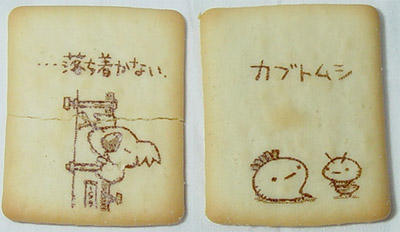 …落ち着かない.
カブトムシ